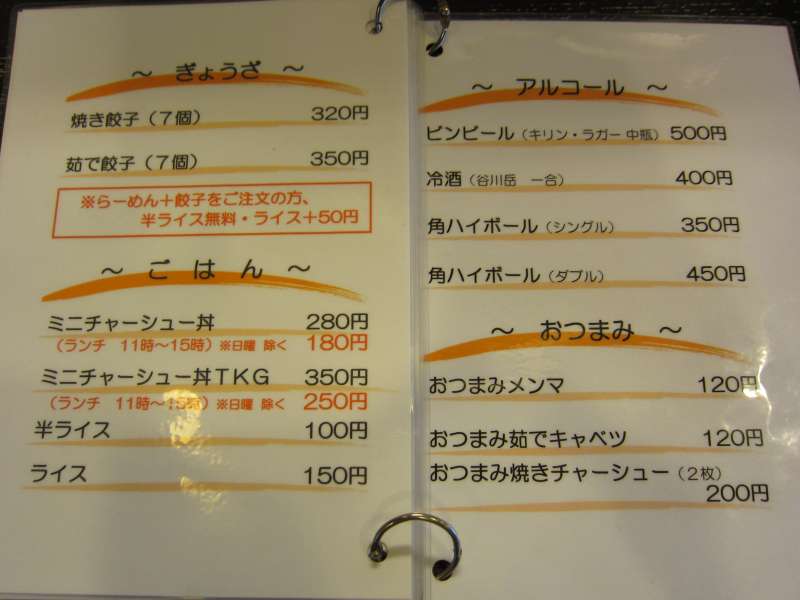 ～ ぎょうざ ～
焼き餃子（７個） 320円
茹で餃子（７個） 350円
※らーめん＋餃子をご注文の方、
半ライス無料・ライス＋50円
～ ごはん ～
ミニチャーシュー丼 280円
（ランチ 11時～15時）※日曜 除く 180円
ミニチャーシュー丼ＴＫＧ 350円
（ランチ 11時～15時）※日曜 除く 250円
半ライス 100円
ライス 150円
～ アルコール ～
ビンビール（キリン・ラガー 中瓶） 500円
冷酒（谷川岳 一合） 400円
角ハイボール（シングル） 350円
角ハイボール（ダブル） 450円
～ おつまみ ～
おつまみメンマ 120円
おつまみ茹でキャベツ 120円
おつまみ焼きチャーシュー（２枚）
200円